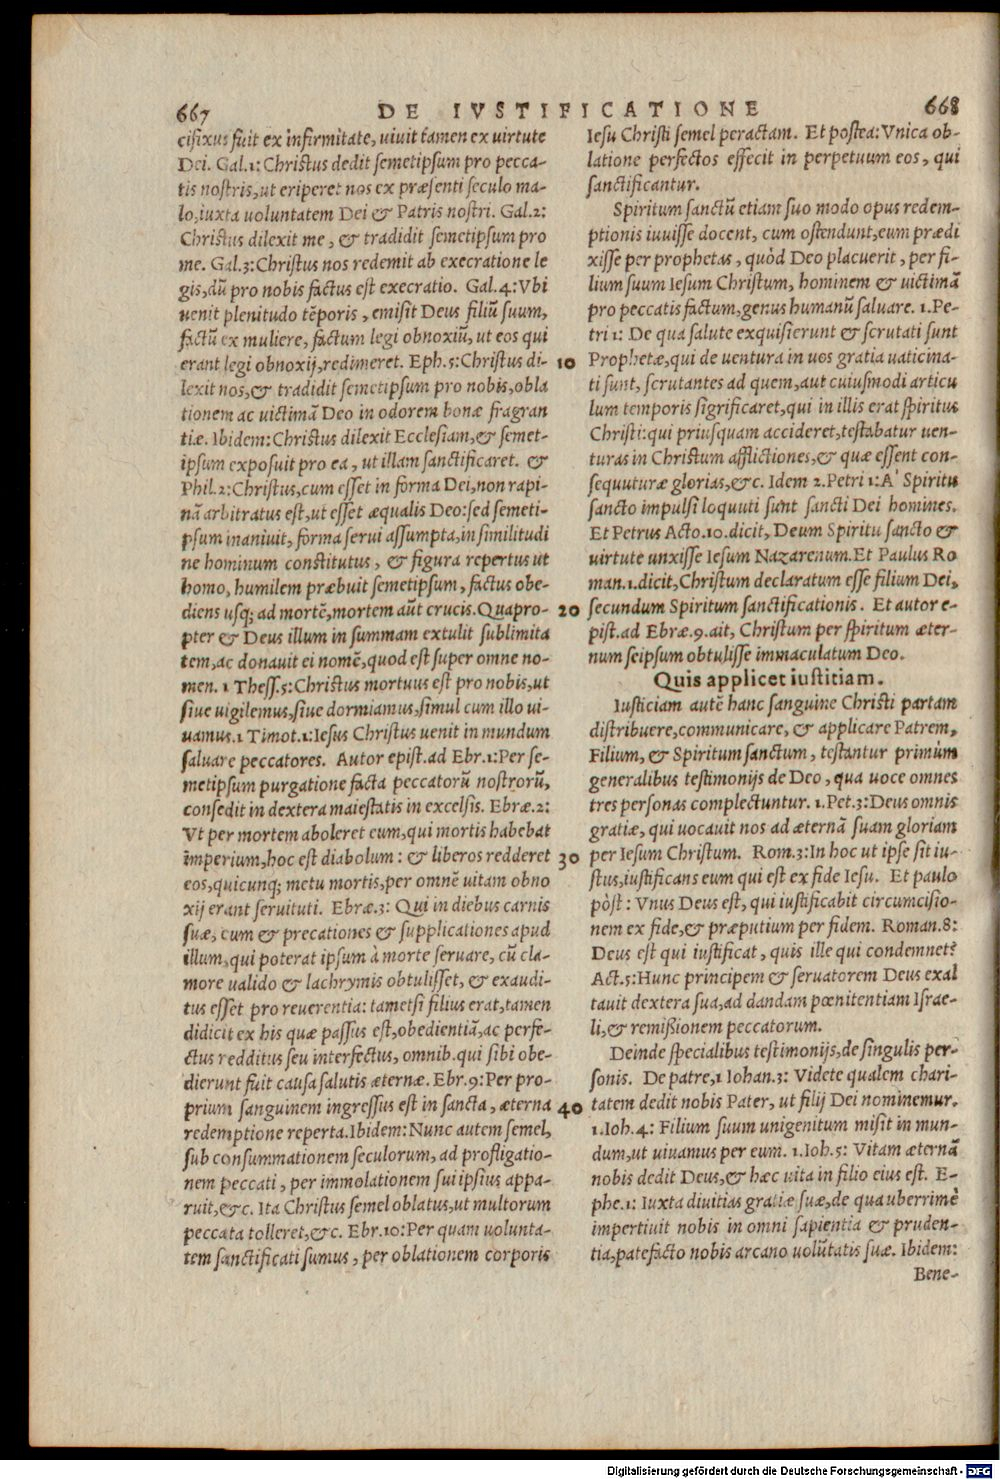 667 DE IVSTIFICATIONE 668
cifixus fuit ex infirmitate, uiuit tamen ex uirtute
Dei. Gal.1: Christus dedit semetipsum pro pecca-
tis nostris, ut eriperet nos ex præsenti seculo ma-
lo, iuxta uoluntatem Dei & Patris nostri. Gal.2:
Christus dilexit me, & tradidit semetipsum pro
me. Gal.3: Christus nos redemit ab execratione le
gis, dũ pro nobis factus est execratio. Gal.4: Vbi
uenit plenitudo tẽporis, emisit Deus filiũ suum,
factũ ex muliere, factum legi obnoxiũ, ut eos qui
erant legi obnoxij, redimeret. Eph.5: Christus di-
lexit nos, & tradidit semetipsum pro nobis, obla
tionem ac uictimã Deo in odorem bonæ fragran
tiæ. Ibidem: Christus dilexit Ecclesiam, & semet-
ipsum exposuit pro ea, ut illam sanctificaret. &
Phil.2: Christus, cum esset in forma Dei, non rapi-
nã arbitratus est, ut esset æqualis Deo: sed semeti-
psum inaniuit, forma serui assumpta, in similitudi
ne hominum constitutus, & figura repertus ut
homo, humilem præbuit semetipsum, factus obe-
diens usq; ad mortẽ, mortem aũt crucis. Quapro-
pter & Deus illum in summam extulit sublimita
tem, ac donauit ei nomẽ, quod est super omne no-
men. 1 Thess.5: Christus mortuus est pro nobis, ut
siue uigilemus, siue dormiamus, simul cum illo ui-
uamus. 1 Timot.1: Iesus Christus uenit in mundum
saluare peccatores. Autor epist. ad Ebr.1: Per se-
metipsum purgatione facta peccatorũ nostrorũ,
consedit in dextera maiestatis in excelsis. Ebræ.2:
Vt per mortem aboleret eum, qui mortis habebat
imperium, hoc est diabolum: & liberos redderet
eos, quicunq; metu mortis, per omnẽ uitam obno
xij erant seruituti. Ebræ.3: Qui in diebus carnis
suæ, cum & precationes & supplicationes apud
illum, qui poterat ipsum à morte seruare, cũ cla-
more ualido & lachrymis obtulisset, & exaudi-
tus esset pro reuerentia: tametsi filius erat, tamen
didicit ex his quæ passus est, obedientiã, ac perfe-
ctus redditus seu interfectus, omnib. qui sibi obe-
dierunt fuit causa salutis æternæ. Ebr.9: Per pro-
prium sanguinem ingressus est in sancta, æterna
redemptione reperta. Ibidem: Nunc autem semel,
sub consummationem seculorum, ad profligatio-
nem peccati, per immolationem sui ipsius appa-
ruit, &c. Ita Christus semel oblatus, ut multorum
peccata tolleret, &c. Ebr.10: Per quam uolunta-
tem sanctificati sumus, per oblationem corporis
10
20
30
40
Iesu Christi semel peractam. Et postea: Vnica ob-
latione perfectos effecit in perpetuum eos, qui
sanctificantur.
Spiritum sanctũ etiam suo modo opus redem-
ptionis iuuisse docent, cum ostendunt, eum prædi
xisse per prophetas, quòd Deo placuerit, per fi-
lium suum Iesum Christum, hominem & uictimã
pro peccatis factum, genus humanũ saluare. 1.Pe-
tri 1: De qua salute exquisierunt & scrutati sunt
Prophetæ, qui de uentura in uos gratia uaticina-
ti sunt, scrutantes ad quem, aut cuiusmodi articu
lum temporis significaret, qui in illis erat spiritus
Christi: qui priusquam accideret, testabatur uen-
turas in Christum afflictiones, & quæ essent con-
sequuturæ glorias, &c. Idem 2.Petri 1: A` Spiritu
sancto impulsi loquuti sunt sancti Dei homines.
Et Petrus Acto.10. dicit, Deum Spiritu sancto &
uirtute unxisse Iesum Nazarenum. Et Paulus Ro
man.1. dicit, Christum declaratum esse filium Dei,
secundum Spiritum sanctificationis. Et autor e-
pist. ad Ebræ.9. ait, Christum per spiritum æter-
num seipsum obtulisse immaculatum Deo.
Quis applicet iustitiam.
Iusticiam autẽ hanc sanguine Christi partam
distribuere, communicare, & applicare Patrem,
Filium, & Spiritum sanctum, testantur primùm
generalibus testimonijs de Deo, qua uoce omnes
tres personas complectuntur. 1.Pet.3: Deus omnis
gratiæ, qui uocauit nos ad æternã suam gloriam
per Iesum Christum. Rom.3: In hoc ut ipse sit iu-
stus, iustificans eum qui est ex fide Iesu. Et paulo
pòst: Vnus Deus est, qui iustificabit circumcisio-
nem ex fide, & præputium per fidem. Roman.8:
Deus est qui iustificat, quis ille qui condemnet?
Act.5: Hunc principem & seruatorem Deus exal
tauit dextera sua, ad dandam pœnitentiam Israe-
li, & remissionem peccatorum.
Deinde specialibus testimonijs, de singulis per-
sonis. De patre, 1 Iohan.3: Videte qualem chari-
tatem dedit nobis Pater, ut filij Dei nominemur.
1.Ioh.4: Filium suum unigenitum misit in mun-
dum, ut uiuamus per eum. 1.Ioh.5: Vitam æternã
nobis dedit Deus, & hæc uita in filio eius est. E-
phe.1: Iuxta diuitias gratiæ suæ, de qua uberrimè
impertiuit nobis in omni sapientia & pruden-
tia, patefacto nobis arcano uolũtatis suæ. Ibidem:
Bene-
Digitalisierung gefördert durch die Deutsche Forschungsgemeinschaft - DFG